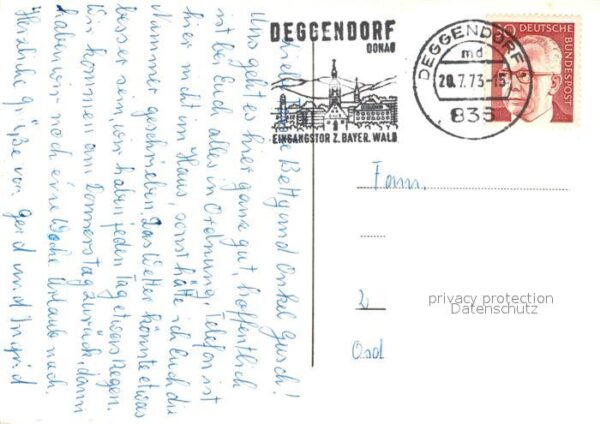 DEGGENDORF
DONAU
EINGANGSTOR Z. BAYER. WALD
DEGGENDORF
md
20.7.73-15
835
DEUTSCHE
BUNDESPOST
Liebe Betty und Onkel Gusch!
Uns geht es hier ganz gut, hoffentlich
ist bei Euch alles in Ordnung. Telefon ist
hier nicht im Haus, sonst hätte ich Euch die
Nummer geschrieben. Das Wetter könnte etwas
besser sein, wir haben jeden Tag etwas Regen.
Wir kommen am Donnerstag zurück, dann
haben wir noch eine Woche Urlaub nach.
Herzliche Grüße von Gerd und Ingrid
Fam.
2
privacy protection
Datenschutz